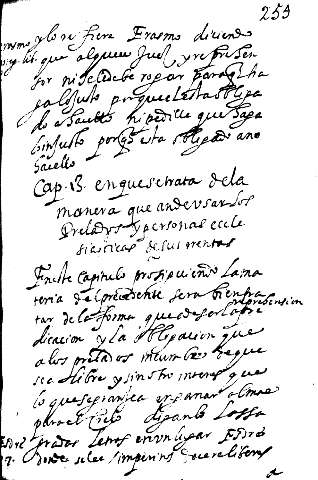 253
y lo refiere Erasmo diziendo
que alguen Juez y reprehen
sor ni se debe rogar para que ha
ga lo justo porque el esta obliga
do a hacello ni pedille que haga
lo injusto porque esta obligado a no
hacello
Cap. 13. en que se trata de la
manera que an de usar los
Prelados y personas eccle
siasticas de sus rentas
En este capitulo prosiguiendo la ma
teria del precedente sera bien tra
tar de la forma que a de ser la pre
reprehension
dicacion y la obligacion que
a los prelados incumbe de que
sea libre y sin otro interes que
lo que se grangea en ganar almas
para el cielo diganlo los sa
grados letras en un lugar Esdras
donde se lee